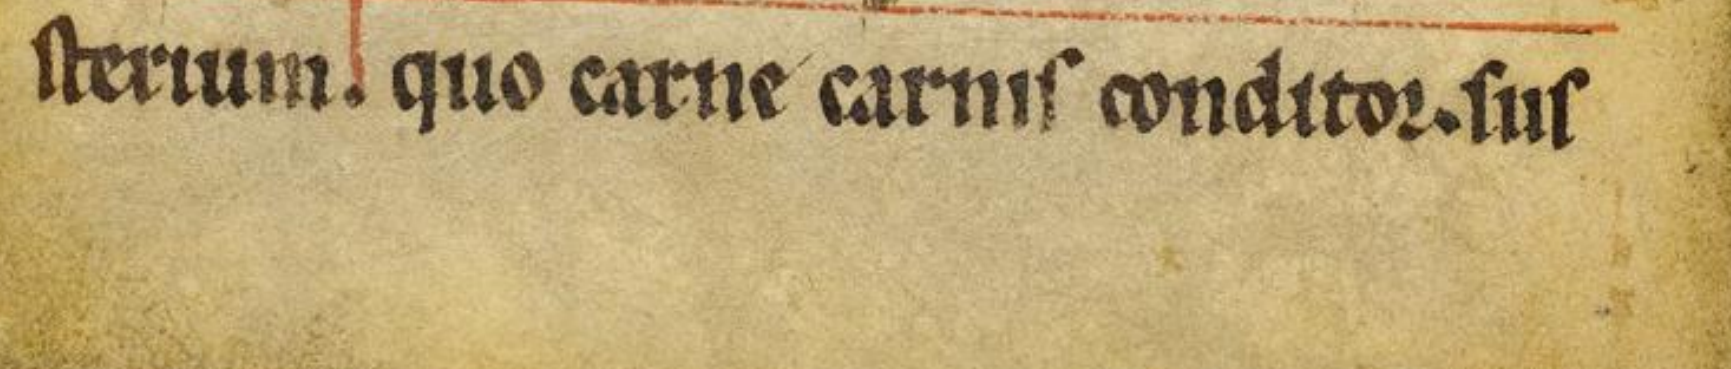 sterium. quo carne carnis conditor. sus